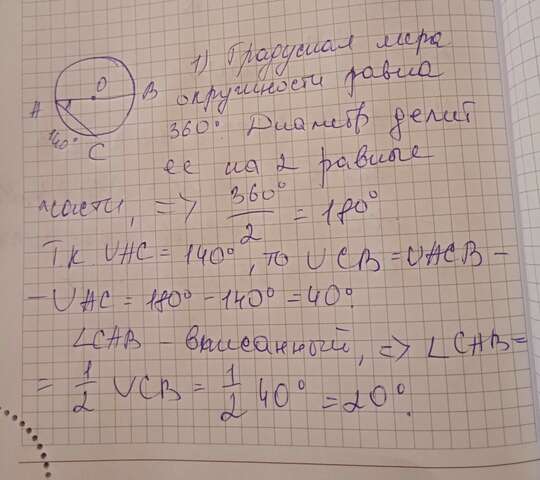 1) Градусная мера
окружности равна
360°. Диаметр делит
ее на 2 равные
части, => 360°/2 = 180°
Тк ∪AC = 140°, то ∪CB = ∪ACB -
- ∪AC = 180° - 140° = 40°.
∠CAB - вписанный, => ∠CAB =
= 1/2 ∪CB = 1/2 40° = 20°.
O
A
B
140°
C